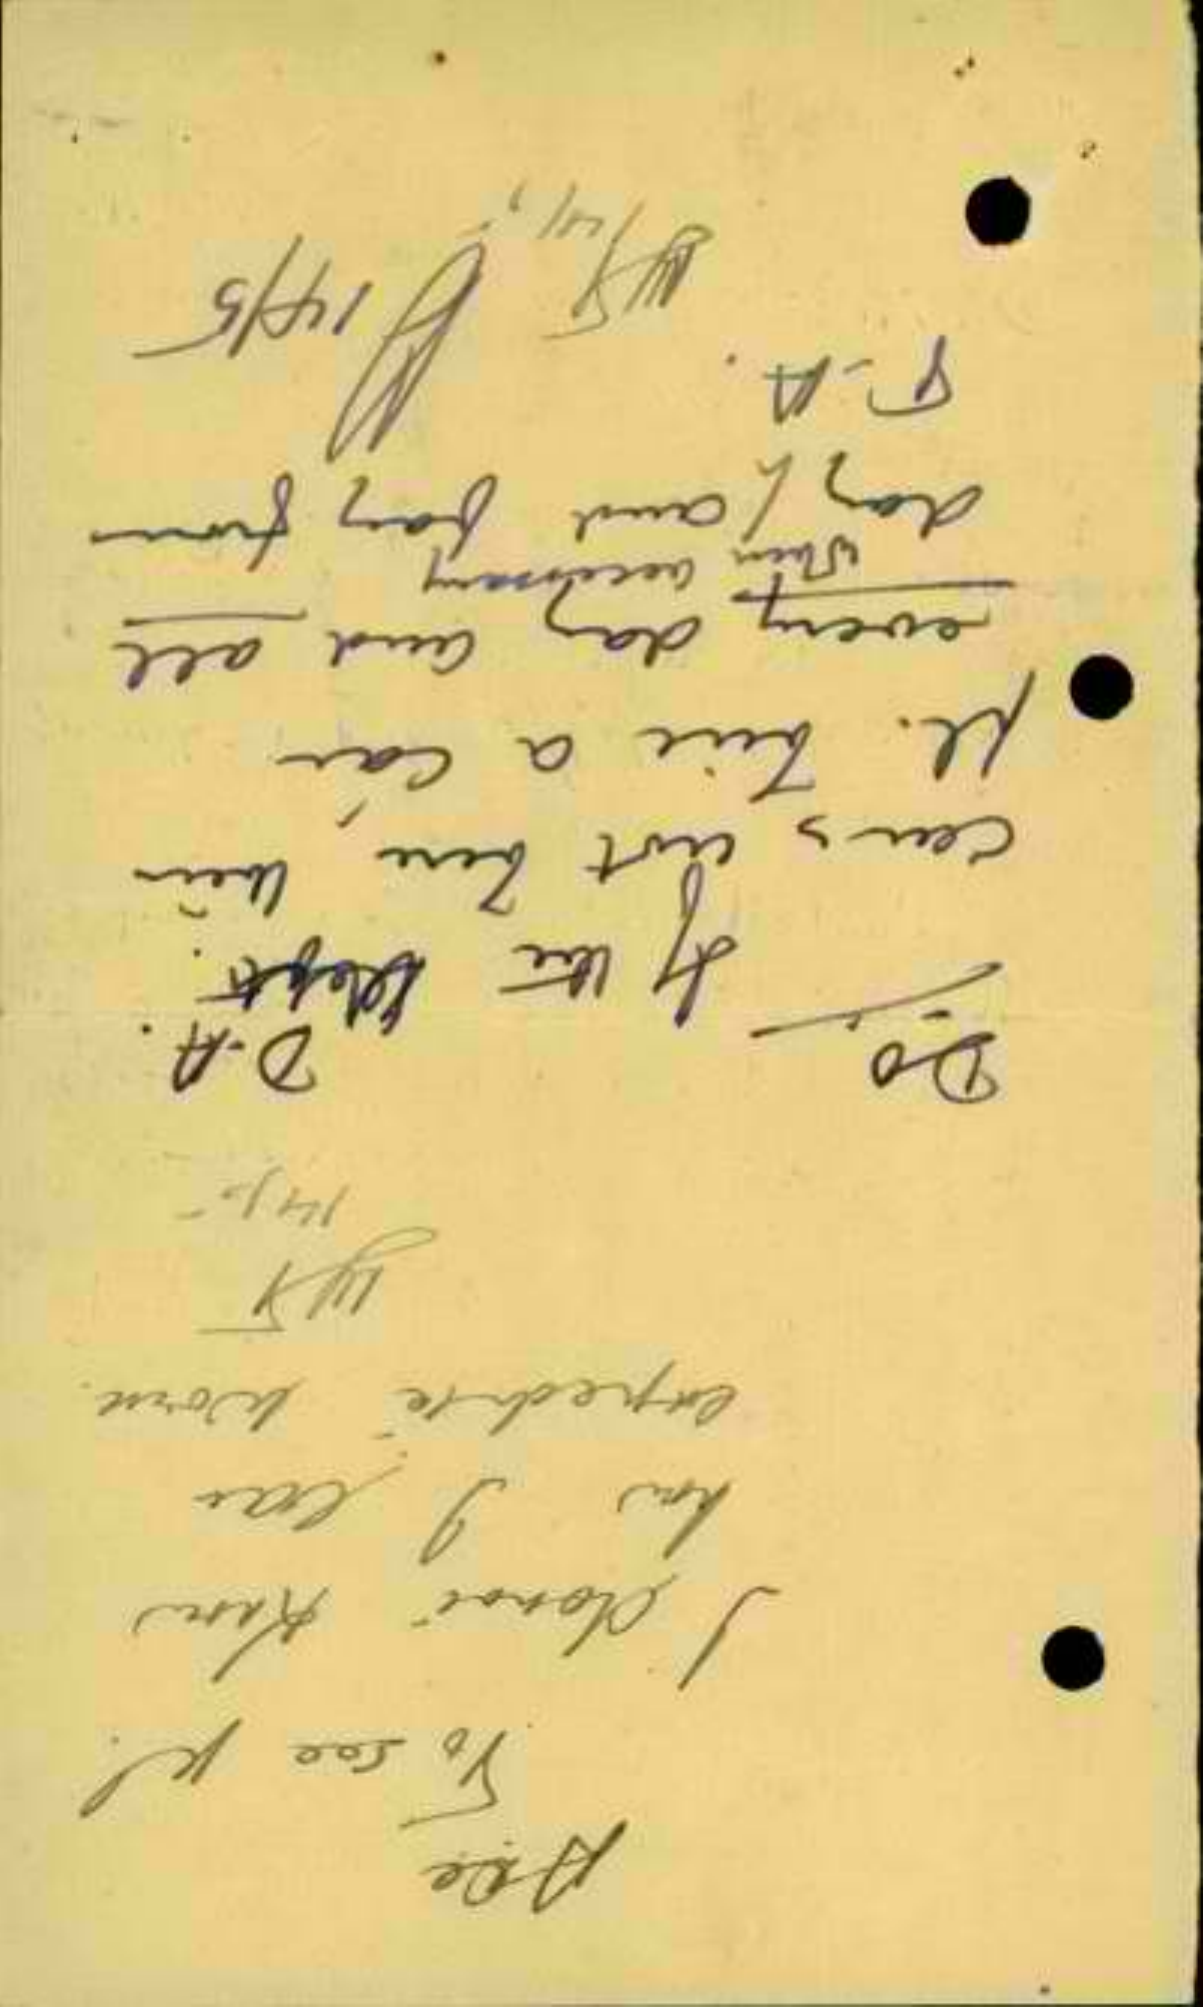 ADC
To see pl.
I donot know
how I can
expedite work.
14/5
DO
D.A.
If the Dept.
car is not here, then
pl. hire a car
every day and all
when necessary
day, and pay from
T.A.
14/5